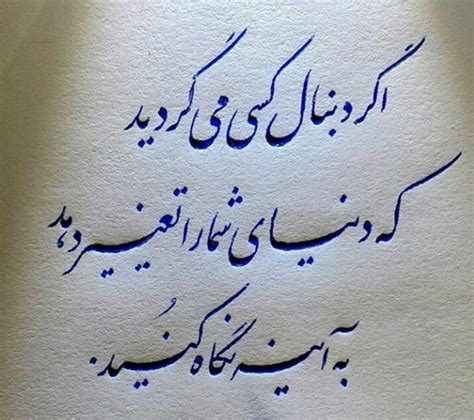 اگر دنبال کسی می گردید
که دنیای شما را تغییر دهد
به آینه نگاه کنید.